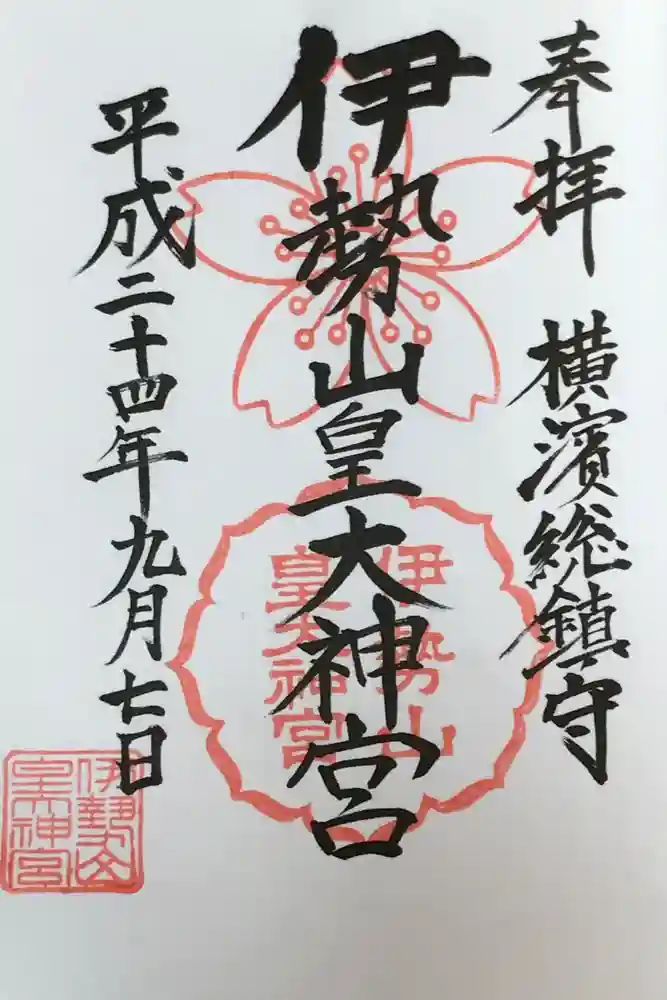 奉拝
横濱総鎮守
伊勢山皇大神宮
平成二十四年九月七日
伊勢山
皇大神宮
伊勢山
皇大神宮